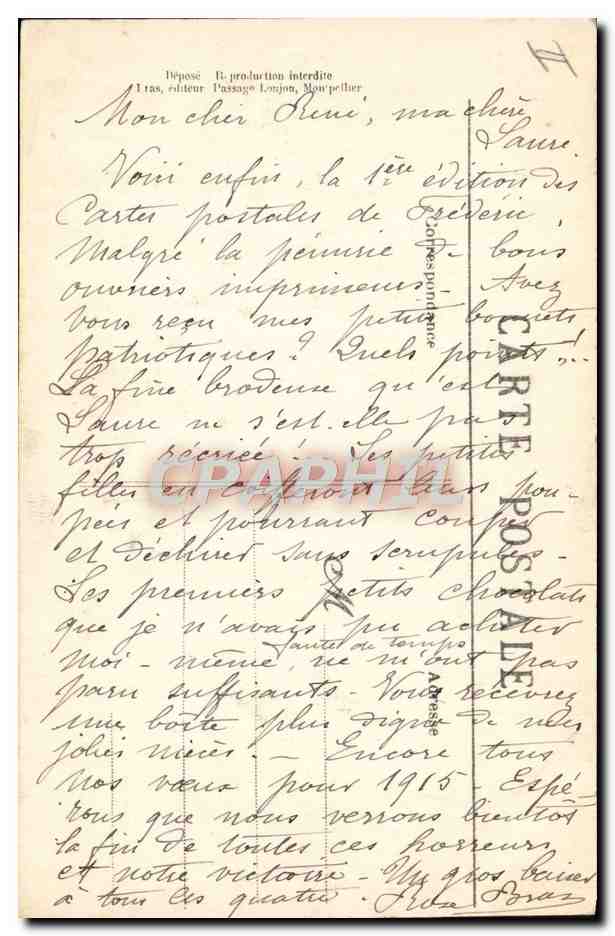 II
Déposé Reproduction interdite
Bras, éditeur Passage Lonjon, Montpellier
Mon cher René, ma chère
Laure.
Voici enfin, la 1ère édition des
Cartes postales de Frédéric,
Malgré la pénurie de bons
ouvriers imprimeurs - Avez
vous reçu mes petits bonnets
patriotiques ? Quels points !..
La fine brodeuse qu'est
Laure ne s'est-elle pas
trop récriée ! Les petites
filles en coifferont leurs pou-
pées et pourront couper
et déchirer sans scrupules -
Les premiers petits chocolats
que je n'avais pu acheter
faute de temps
moi-même, ne m'ont pas
paru suffisants - Vous recevrez
une boîte plus digne de mes
jolies nièces. - Encore tous
nos vœux pour 1915 - Espé-
rons que nous verrons bientôt
la fin de toutes ces horreurs
et notre victoire - Un gros baiser
à tous les quatre -
Bras
CARTE POSTALE
Correspondance
Adresse
CPAPHIL